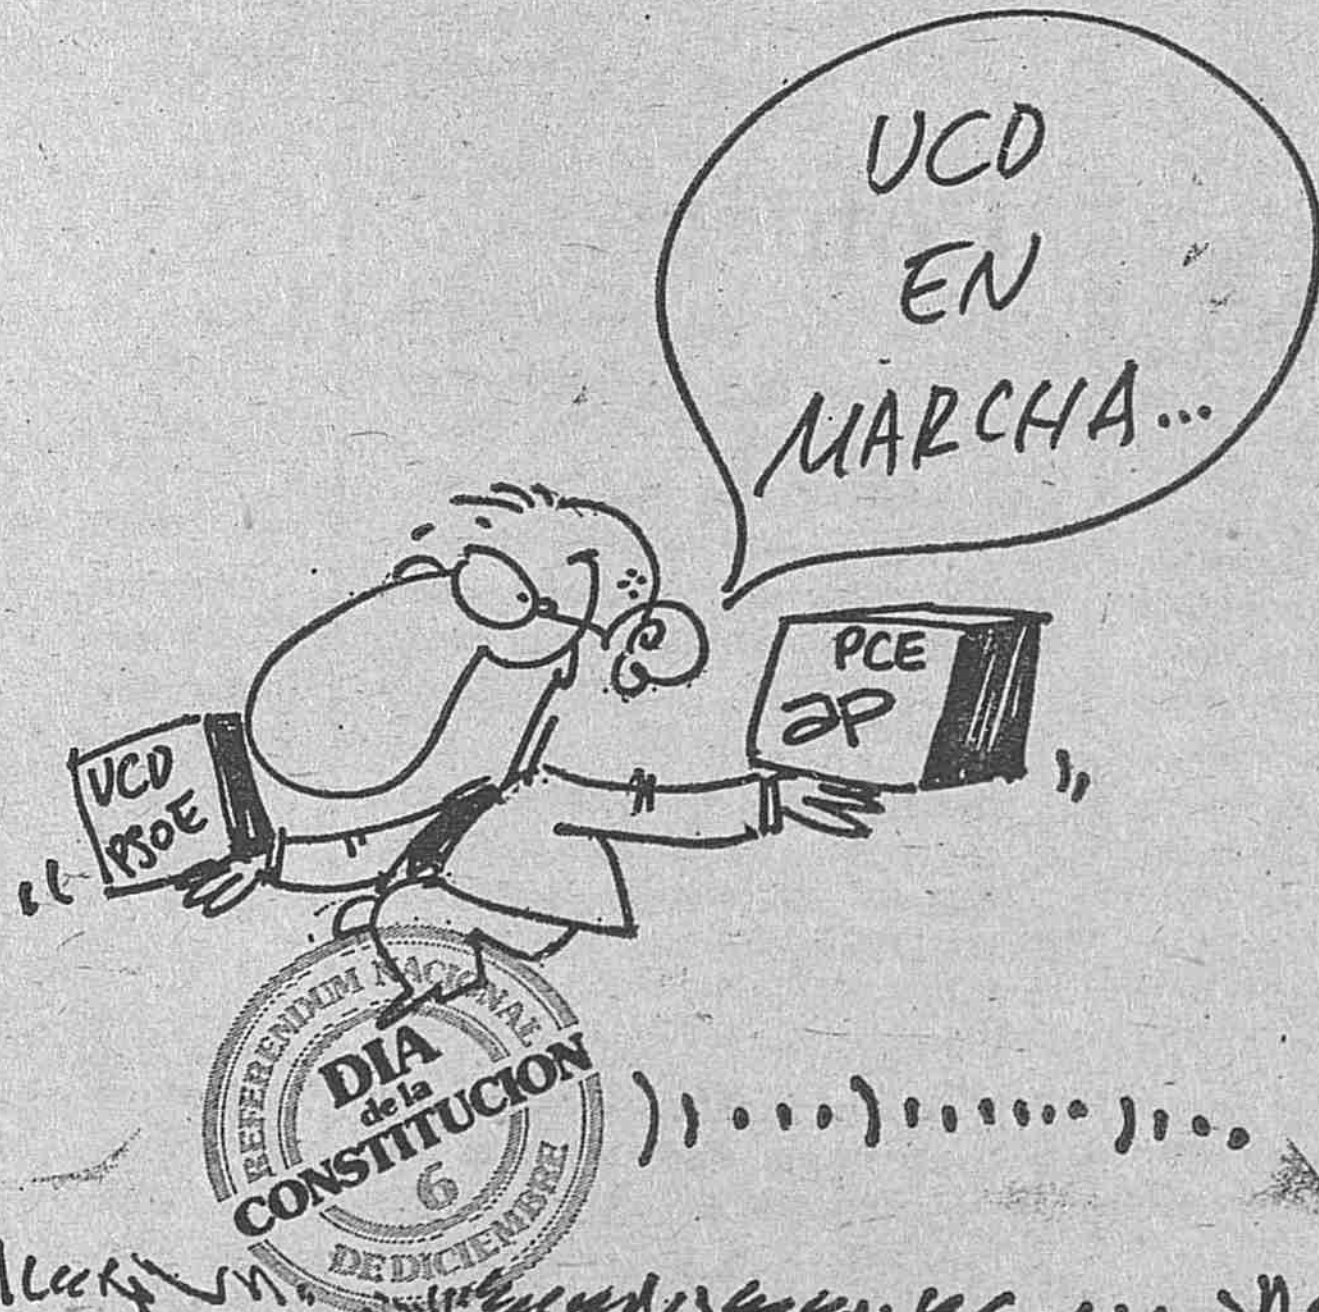 UCD
EN
MARCHA...
PCE
ap
UCD
PSOE
REFERENDUM NACIONAL
DIA
de la
CONSTITUCION
6
DE DICIEMBRE